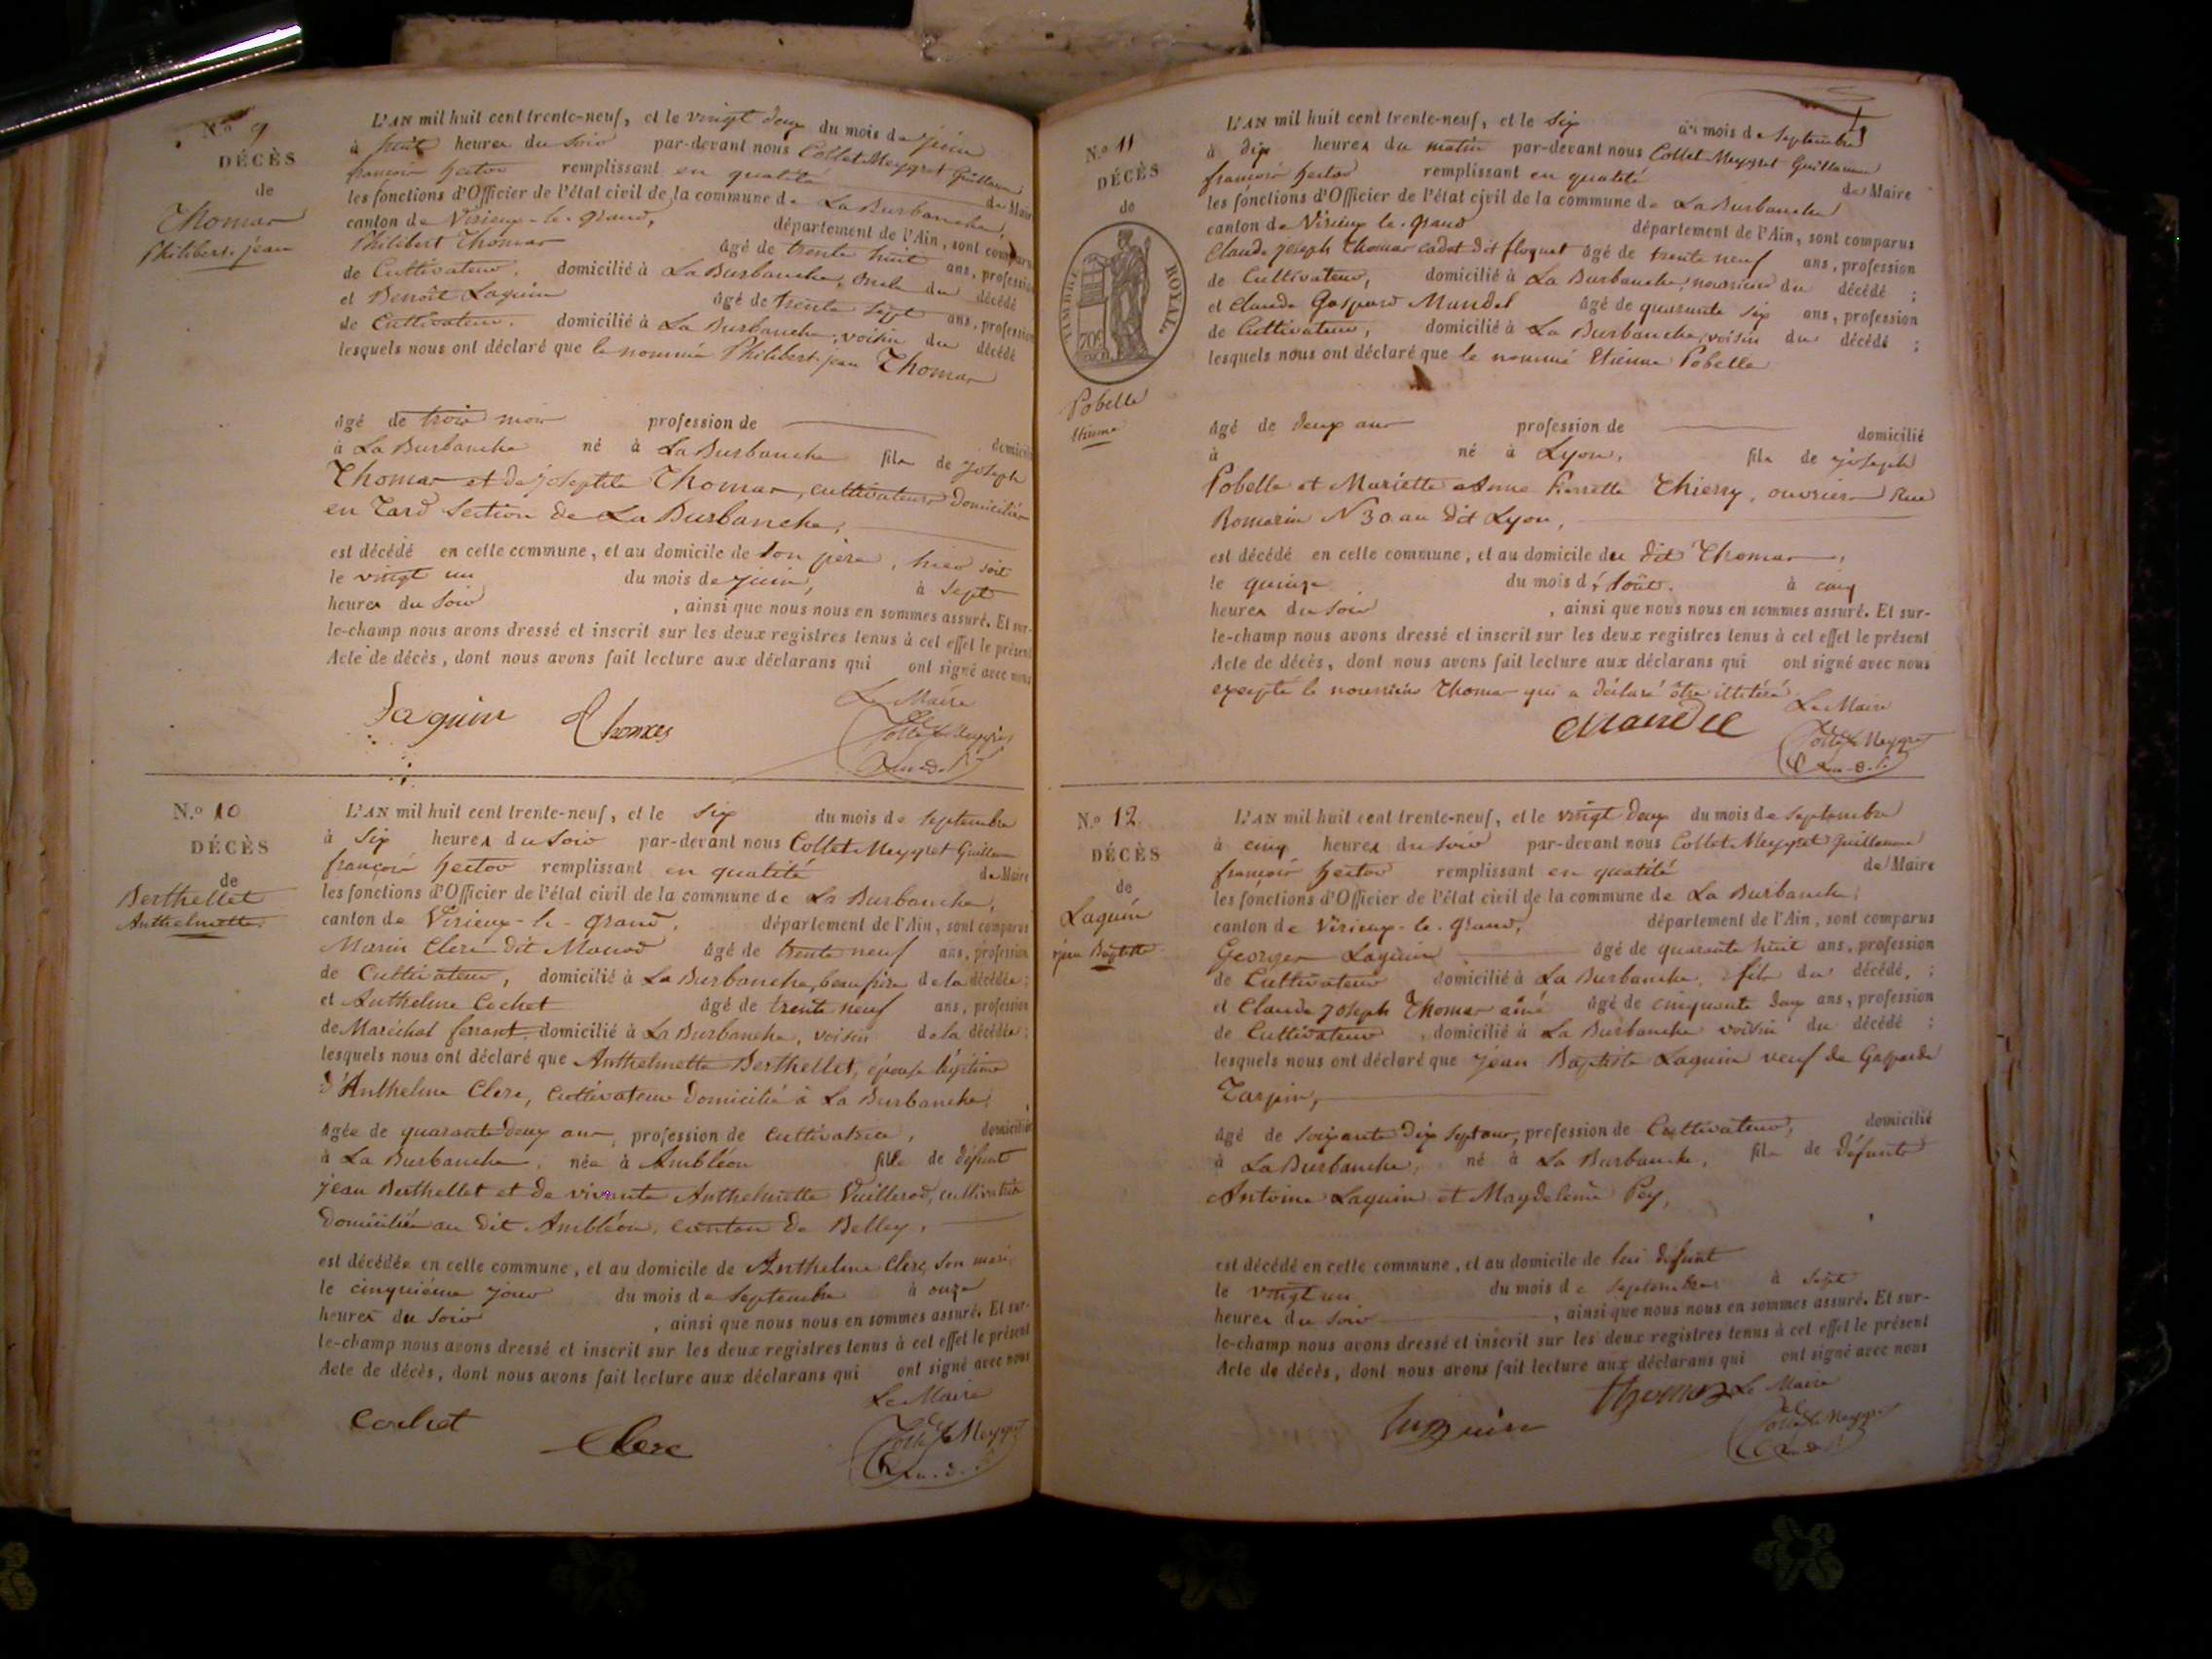 N.o 9
DÉCÈS
de
Thomas
Philibert jean
L'AN mil huit cent trente-neuf, et le vingt deux du mois de juin
à huit heures du soir par-devant nous Collet-Meygret Guillaume
françois hector remplissant en qualité de Maire
les fonctions d'Officier de l'état civil de la commune de La Burbanche,
canton de Virieux-le-grand, département de l'Ain, sont comparus
Philibert Thomas âgé de trente huit ans, profession
de Cultivateur, domicilié à La Burbanche, oncle du décédé
et Benoît Laguin âgé de trente sept ans, profession
de Cultivateur. domicilié à La Burbanche, voisin du décédé
lesquels nous ont déclaré que le nommé Philibert jean Thomas
âgé de trois mois profession de domicilié
à La Burbanche né à La Burbanche fils de joseph
Thomas et de josephte Thomas, cultivateurs domiciliés
en Tard section de La Burbanche,
est décédé en cette commune, et au domicile de son père, hier soir
le vingt un du mois de juin, à sept
heures du soir, ainsi que nous nous en sommes assuré. Et sur-
le-champ nous avons dressé et inscrit sur les deux registres tenus à cet effet le présent
Acte de décès, dont nous avons fait lecture aux déclarans qui ont signé avec nous
Le Maire
Laguin Thomas Collet Meygret
N.o 10
DÉCÈS
de
Berthellet
Anthelmette
L'AN mil huit cent trente-neuf, et le six du mois de septembre
à six heures du soir par-devant nous Collet-Meygret Guillaume
françois hector remplissant en qualité de Maire
les fonctions d'Officier de l'état civil de la commune de La Burbanche,
canton de Virieux-le-grand, département de l'Ain, sont comparus
Marin Clerc dit Manod âgé de trente neuf ans, profession
de Cultivateur, domicilié à La Burbanche, beau frère de la décédée;
et Anthelme Cochet âgé de trente neuf ans, profession
de Maréchal ferrant, domicilié à La Burbanche, voisin de la décédée;
lesquels nous ont déclaré que Anthelmette Berthellet, épouse légitime
d'Anthelme Clerc, Cultivateur domicilié à La Burbanche,
âgée de quarante deux ans, profession de Cultivatrice, domicilié
à La Burbanche, née à Ambléon fille de défunt
jean Berthellet et de vivante Anthelmette Vuillerod, cultivatrice
domiciliée au dit Ambléon, canton de Belley,
est décédée en cette commune, et au domicile de Anthelme Clerc, son mari,
le cinquième jour du mois de septembre à onze
heures du soir, ainsi que nous nous en sommes assuré. Et sur-
le-champ nous avons dressé et inscrit sur les deux registres tenus à cet effet le présent
Acte de décès, dont nous avons fait lecture aux déclarans qui ont signé avec nous
Le Maire
Cochet Clerc Collet Meygret
N.o 11
DÉCÈS
de
TIMBRE ROYAL.
70c
Pobelle
Etienne
L'AN mil huit cent trente-neuf, et le six du mois de septembre
à dix heures du matin par-devant nous Collet-Meygret Guillaume
françois hector remplissant en qualité de Maire
les fonctions d'Officier de l'état civil de la commune de La Burbanche
canton de Virieux le-grand département de l'Ain, sont comparus
Claude joseph Thomas cadet dit floquet âgé de trente neuf ans, profession
de Cultivateur, domicilié à La Burbanche, nourricier du décédé;
et Claude Gaspard Mandel âgé de quarante six ans, profession
de Cultivateur, domicilié à La Burbanche, voisin du décédé;
lesquels nous ont déclaré que le nommé Etienne Pobelle
âgé de deux ans profession de domicilié
à né à Lyon, fils de joseph
Pobelle et Mariette Anne Pierrette Thierry, ouvriers Rue
Romarin N 30 au dit Lyon,
est décédé en cette commune, et au domicile du dit Thomas,
le quinze du mois d'Août, à cinq
heures du soir, ainsi que nous nous en sommes assuré. Et sur-
le-champ nous avons dressé et inscrit sur les deux registres tenus à cet effet le présent
Acte de décès, dont nous avons fait lecture aux déclarans qui ont signé avec nous
excepté le nourricier Thomas qui a déclaré être illitéré
Le Maire
Mandel Collet Meygret
N.o 12
DÉCÈS
de
Laguin
jean Baptiste
L'AN mil huit cent trente-neuf, et le vingt deux du mois de septembre
à cinq heures du soir par-devant nous Collet-Meygret Guillaume
françois hector remplissant en qualité de Maire
les fonctions d'Officier de l'état civil de la commune de La Burbanche,
canton de Virieux-le-grand, département de l'Ain, sont comparus
Georges Laguin âgé de quarante huit ans, profession
de Cultivateur domicilié à La Burbanche, fils du décédé,;
et Claude joseph Thomas ainé âgé de cinquante deux ans, profession
de Cultivateur, domicilié à La Burbanche voisin du décédé;
lesquels nous ont déclaré que jean Baptiste Laguin veuf de Gasparde
Tarpin,
âgé de soixante dix sept ans, profession de Cultivateur, domicilié
à La Burbanche, né à La Burbanche, fils de défunts
Antoine Laguin et Magdeleine Pey,
est décédé en cette commune, et au domicile de lui défunt
le vingt un du mois de septembre à sept
heures du soir, ainsi que nous nous en sommes assuré. Et sur-
le-champ nous avons dressé et inscrit sur les deux registres tenus à cet effet le présent
Acte de décès, dont nous avons fait lecture aux déclarans qui ont signé avec nous
Laguin Thomas Le Maire
Collet Meygret